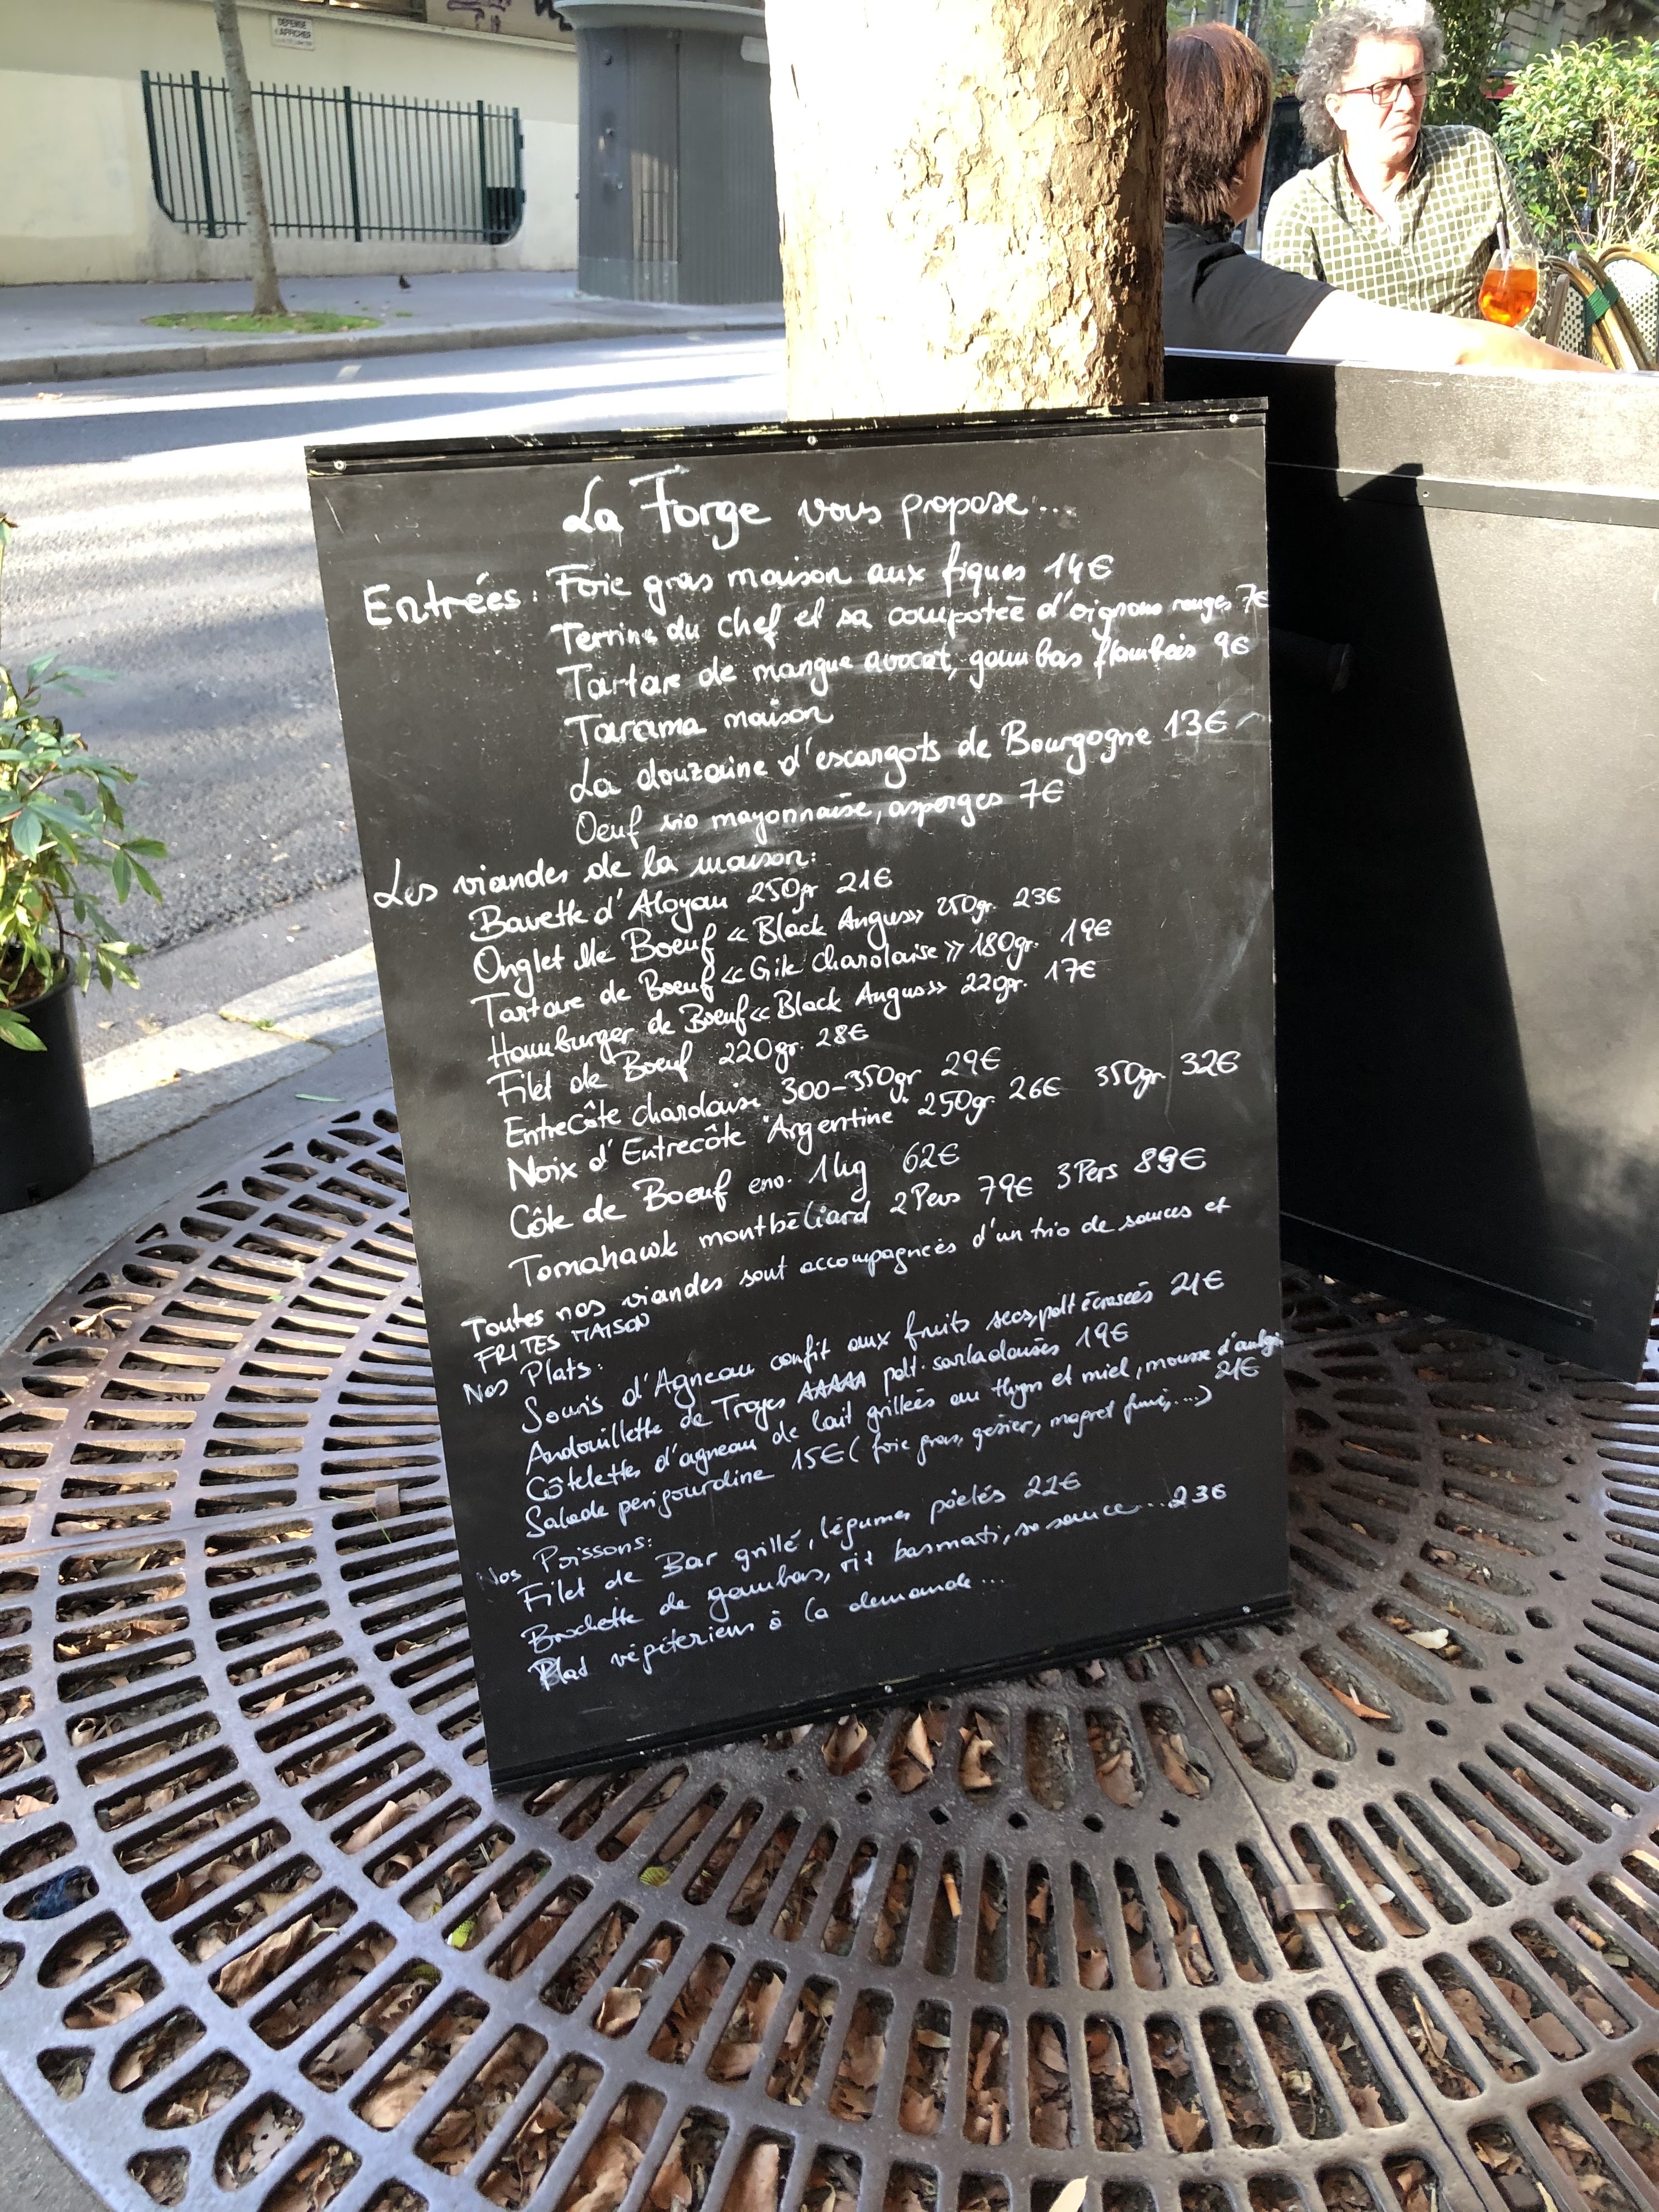 DEFENSE
D'AFFICHER
La Forge vous propose...
Entrées: Foie gras maison aux figues 14€
Terrine du chef et sa compoteè d'oignons rouges 7€
Tartare de mangue avocat, gambas flambeès 9€
Tarama maison
La douzaine d'escargots de Bourgogne 13€
Oeuf mayonnaise, asperges 7€
Les viandes de la maison:
Bavette d'Aloyau 250gr 21€
Onglet de Boeuf « Black Angus» 250gr. 23€
Tartare de Boeuf « Charolaise » 180gr. 19€
Hamburger de Boeuf « Black Angus» 220gr. 17€
Filet de Boeuf 220gr. 28€
EntreCôte charolaise 300-350gr 29€
Noix d'Entrecôte "Argentine" 250gr. 26€ 350gr 32€
Côte de Boeuf env. 1kg 62€
Tomahawk montbèliard 2Pers 79€ 3Pers 89€
Toutes nos viandes sont accompagneès d'un trio de sauces et
FRITES MAISON
Nos Plats:
Souris d'Agneau confit aux fruits secs, patt écraseès 21€
Andouillette de Troyes patt. sarladaisès 19€
Côtelettes d'agneau de lait grilleès au thym et miel, mousse
21€
Salade perigourdine 15€ (foie gras, gesier, magret fumé,...)
Nos Poissons:
Filet de Bar grillé, légumes poèlés 22€
Brochette de gambas, riz basmati, sa sauce...23€
Plat végéteriens à la demande...